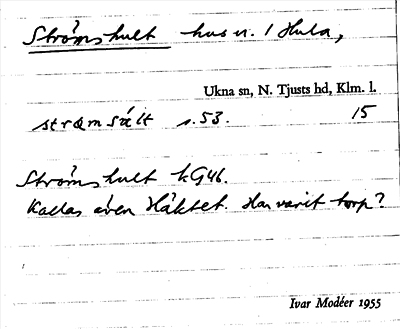 Strömshult hus u. / Hula,
Ukna sn, N. Tjusts hd, Klm. l.
strömsält s. 53. 15
Strömshult kG46.
Kallas även Häktet. Har varit torp?
Ivar Modéer 1955